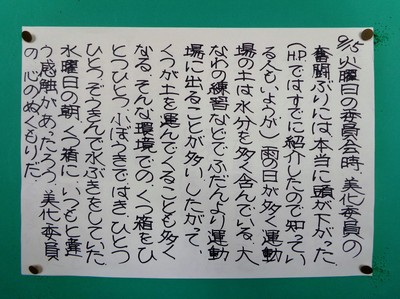 9/15火曜日の委員会時、美化委員の
奮闘ぶりには本当に頭が下がった。
(H.P.ではすでに紹介したので知ってい
る人もいよが)雨の日が多く、運動
場の土は水分を多く含んでいる。大
なわの練習などでふだんより運動
場に出ることが多い。したがって、
くつが土を運んでくることも多く
なる。そんな環境での、くつ箱をひ
とつひとつ、小ぼうきではき、ひとつ
ひとつぞうきんで水ぶきをしていた。
水曜日の朝、くつ箱に、いつもと違
う感触があったろう。美化委員
の、心のぬくもりだ。